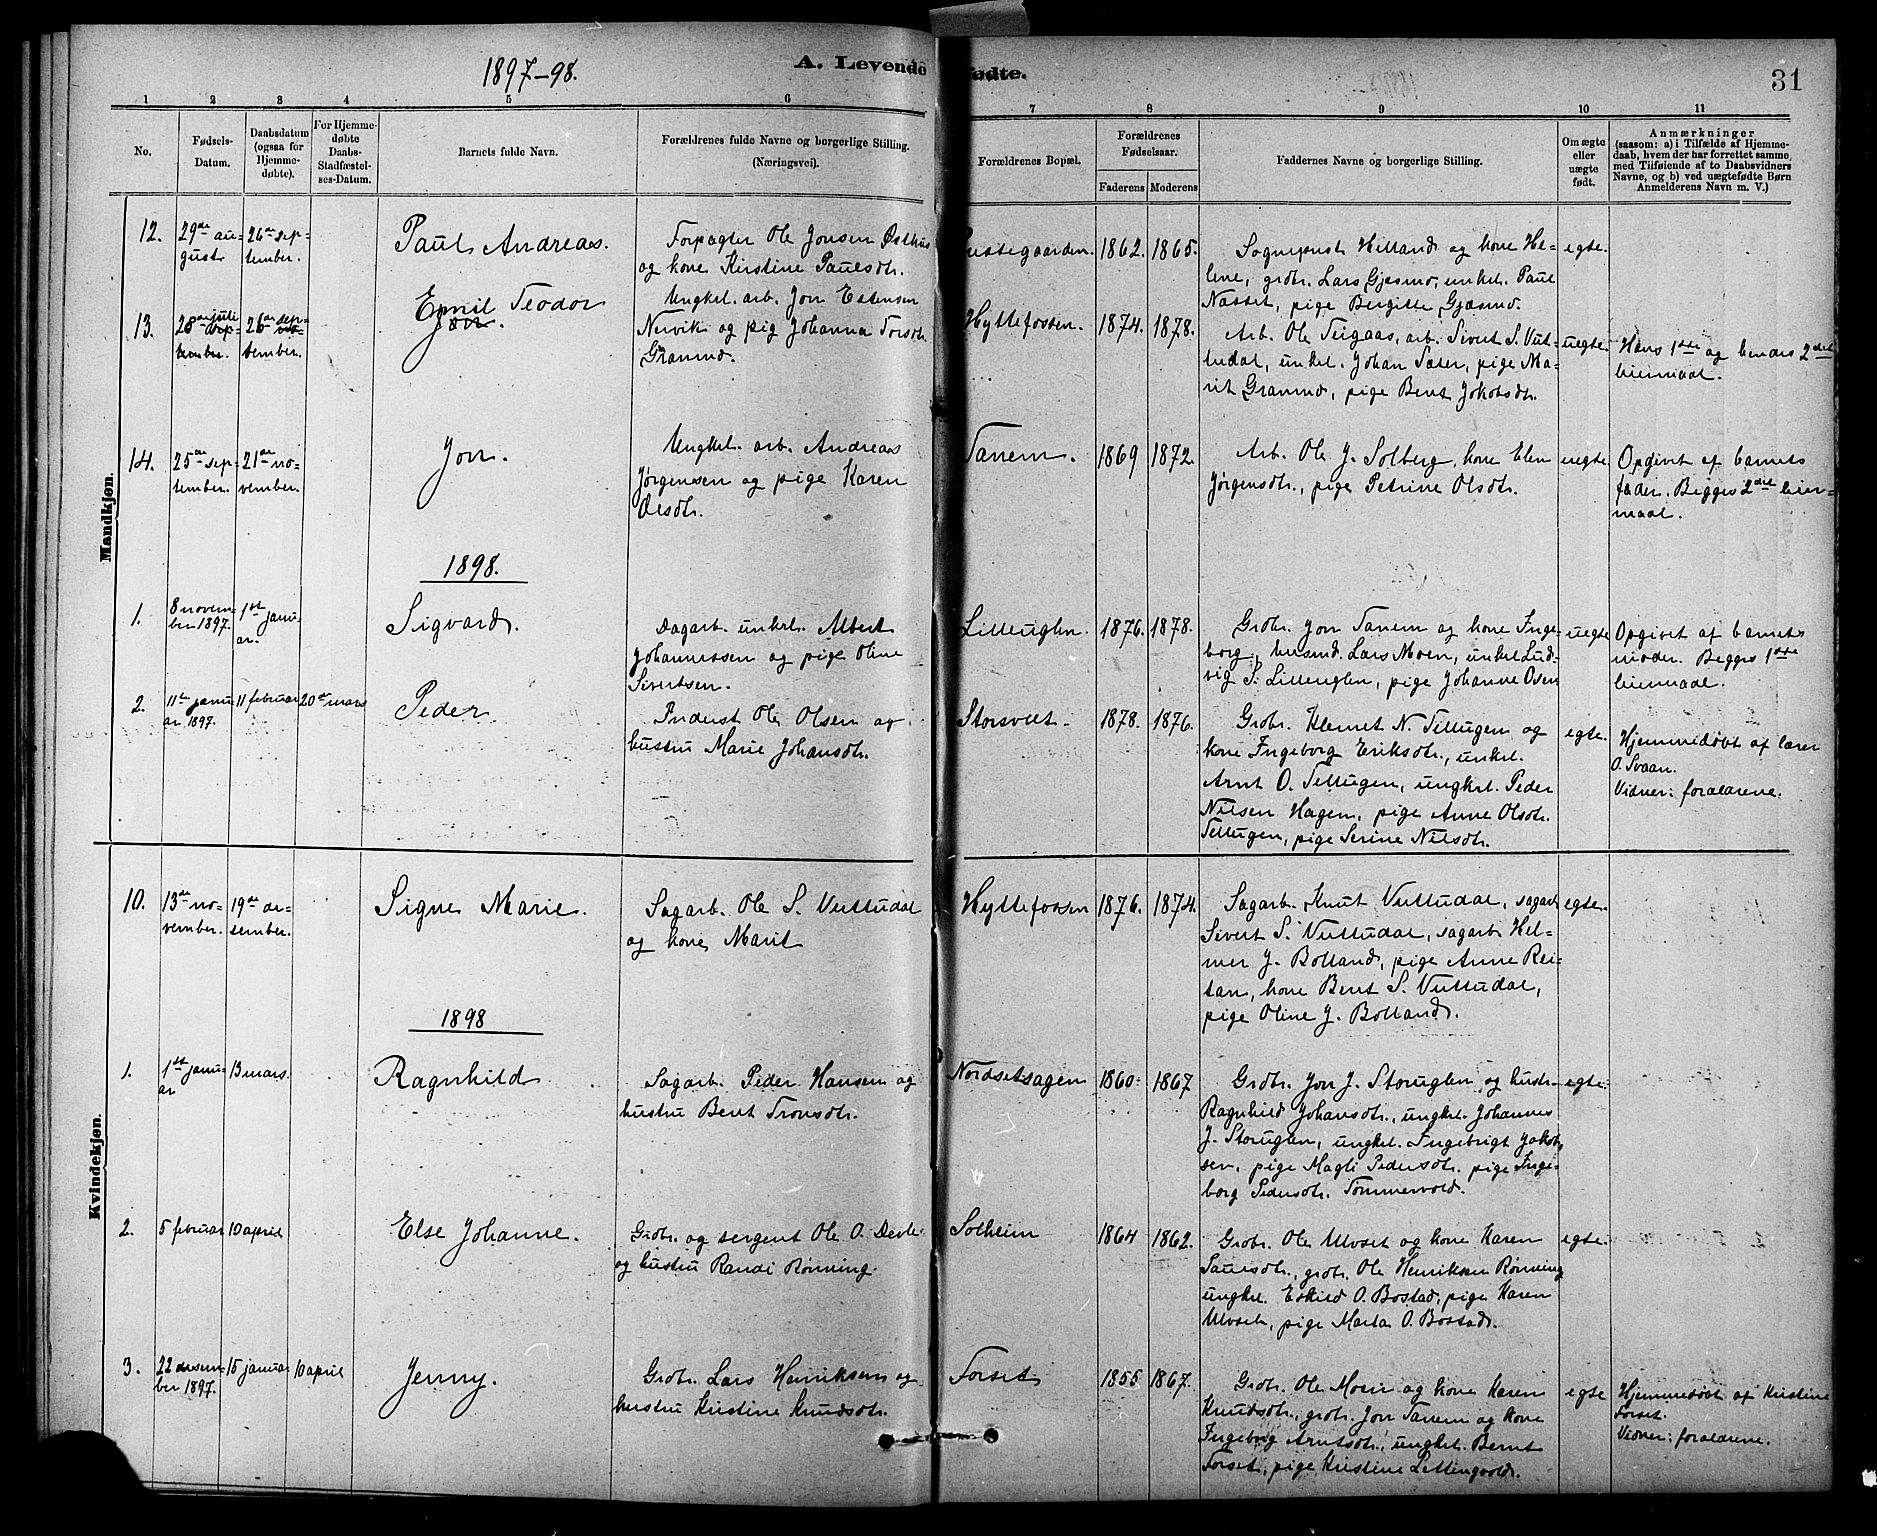 1897-98.
A. Levende
fødte.
31
1 2 3 4 5 6 7 8 9 10 11
No.
Fødsels-
Datum.
Daabsdatum
(ogsaa for
Hjemme-
døbte).
For Hjemme-
døbte
Daabs-
Stadfæstel-
ses-Datum.
Barnets fulde Navn.
Forældrenes fulde Navne og borgerlige Stilling.
(Næringsvei).
Forældrenes Bopæl.
Forældrenes
Fødselsaar.
Faderens Moderens
Faddernes Navne og borgerlige Stilling.
Om ægte
eller
uægte
født.
Anmærkninger
(saasom: a) i Tilfælde af Hjemme-
daab, hvem der har forrettet samme,
med Tilføiende af to Daabsvidners
Navne, og b) ved uægtefødte Børn
Anmelderens Navn m. V.)
Mandkjøn.
12.
29de au-
gust
26de sep-
tember.
Paul Andreas.
Forpagter Ole Jonsen Østhus
og kone Kirstine Paulsdtr.
1862. 1865.
Sogneprest Hilland og kone He-
lene, grdbr. Lars Gjæsmo, unkel. Paul
Nasset, pige Bergitte Gjæsmo.
egte.
13.
juli
tember.
26de sep-
tember.
Emil Teodor
Jon.
Ungkel. arb. Jon Estensen
Nervik og pig Johanna Torsdtr.
Granmo.
Hyttefossen.
1874. 1878.
Arb. Ole Teigaas, arb. Sivert S. Vut-
tudal, unkel. Johan Sæter, pige Ma-
rit Granmo, pige Berit Jakobsdtr.
uegte.
Hans 1ste og hendes 2det
leiermaal.
14.
25de sep-
tember.
21de no-
vember.
Jon.
Ungkel. arb. Andreas
Jørgensen og pige Karen
Olsdtr.
Tanem.
1869 1872.
Arb. Ole J. Solberg, kone Elen
Jørgensdtr., pige Petrine Olsdtr.
uegte.
Opgivet af barnets
fader. Begges 2det leier-
maal.
1898.
1.
8 novem-
ber 1897.
1ste janu-
ar.
Sigvard.
Dagarb. unkel. Albert
Johannessen og pige Oline
Sivertsen.
Lilleuglen.
1876. 1878.
Grdbr. Jon Tanem og kone Inge-
borg, husmd. Lars Moen, unkel Lud-
vig S. Lilleuglen, pige Johanne Osen
uegte
Opgivet af barnets
moder. Begges 1ste
leiermaal.
2.
11te janu-
ar 1897.
11 februar
20de mars
Peder
Inderst Ole Olsen og
hustru Marie Johansdtr.
Storsvet.
1878. 1876.
Grdbr. Klemet N. Tellugen og
kone Ingeborg Eriksdtr., unkel.
Arnt O. Tellugen, ungkel. Peder
Nilsen Hagen, pige Anne Olsdtr.
Tellugen, pige Serine Nilsdtr.
egte.
Hjemmedøbt af lærer
O. Svaan.
Vidner: forældrene.
Kvindekjøn.
10.
13de no-
vember.
19de de-
sember.
Signe Marie.
Sagarb. Ole S. Vuttudal
og kone Marit
Hyttefossen
1876. 1874.
Sagarb. Knut Vuttudal, sagarb
Sivert S. Vuttudal, sagarb Hel-
mer J. Bolland, pige Anne Rei-
tan, kone Berit S. Vuttudal,
pige Oline J. Bolland.
egte.
1898
1.
1ste janu-
ar
13 mars.
Ragnhild
Sagarb. Peder Hansen og
hustru Berit Tronsdtr.
Nordsetsagen
1860. 1867
Grdbr. Jon J. Storuglen og hustr.
Ragnhild Johansdtr., ungkel. Johannes
J. Storuglen, ungkel. Ingebrigt Jakob-
sen, pige Magli Pedersdtr. pige Inge-
borg Pedersdtr. Tømmervold.
egte.
2.
5 februar
10 april
Else Johanne.
Grdbr. og sergent Ole O. Devle
og hustru Randi Rønning.
Solheim
1864 1862.
Grdbr. Ole Ulvset og kone Karen
Paulsdtr., grdbr. Ole Henriksen Rønning
ungkel. Eskild O. Bostad, pige Karen
Ulvset, pige Marta O. Bostad.
egte.
3.
22 desem-
ber 1897.
15 januar
10 april
Jenny.
Grdbr. Lars Henriksen og
hustru Kristine Knudsdtr.
Forset
1855 1867.
Grdbr. Ole Moen og kone Karen
Knudsdtr., grdbr. Jon Tanem og kone
Ingeborg Arntsdtr., ungkel. Bernt
Forset, pige Kristine Lettingvold.
egte
Hjemmedøbt af Kristine
Forset.
Vidner: forældrene.